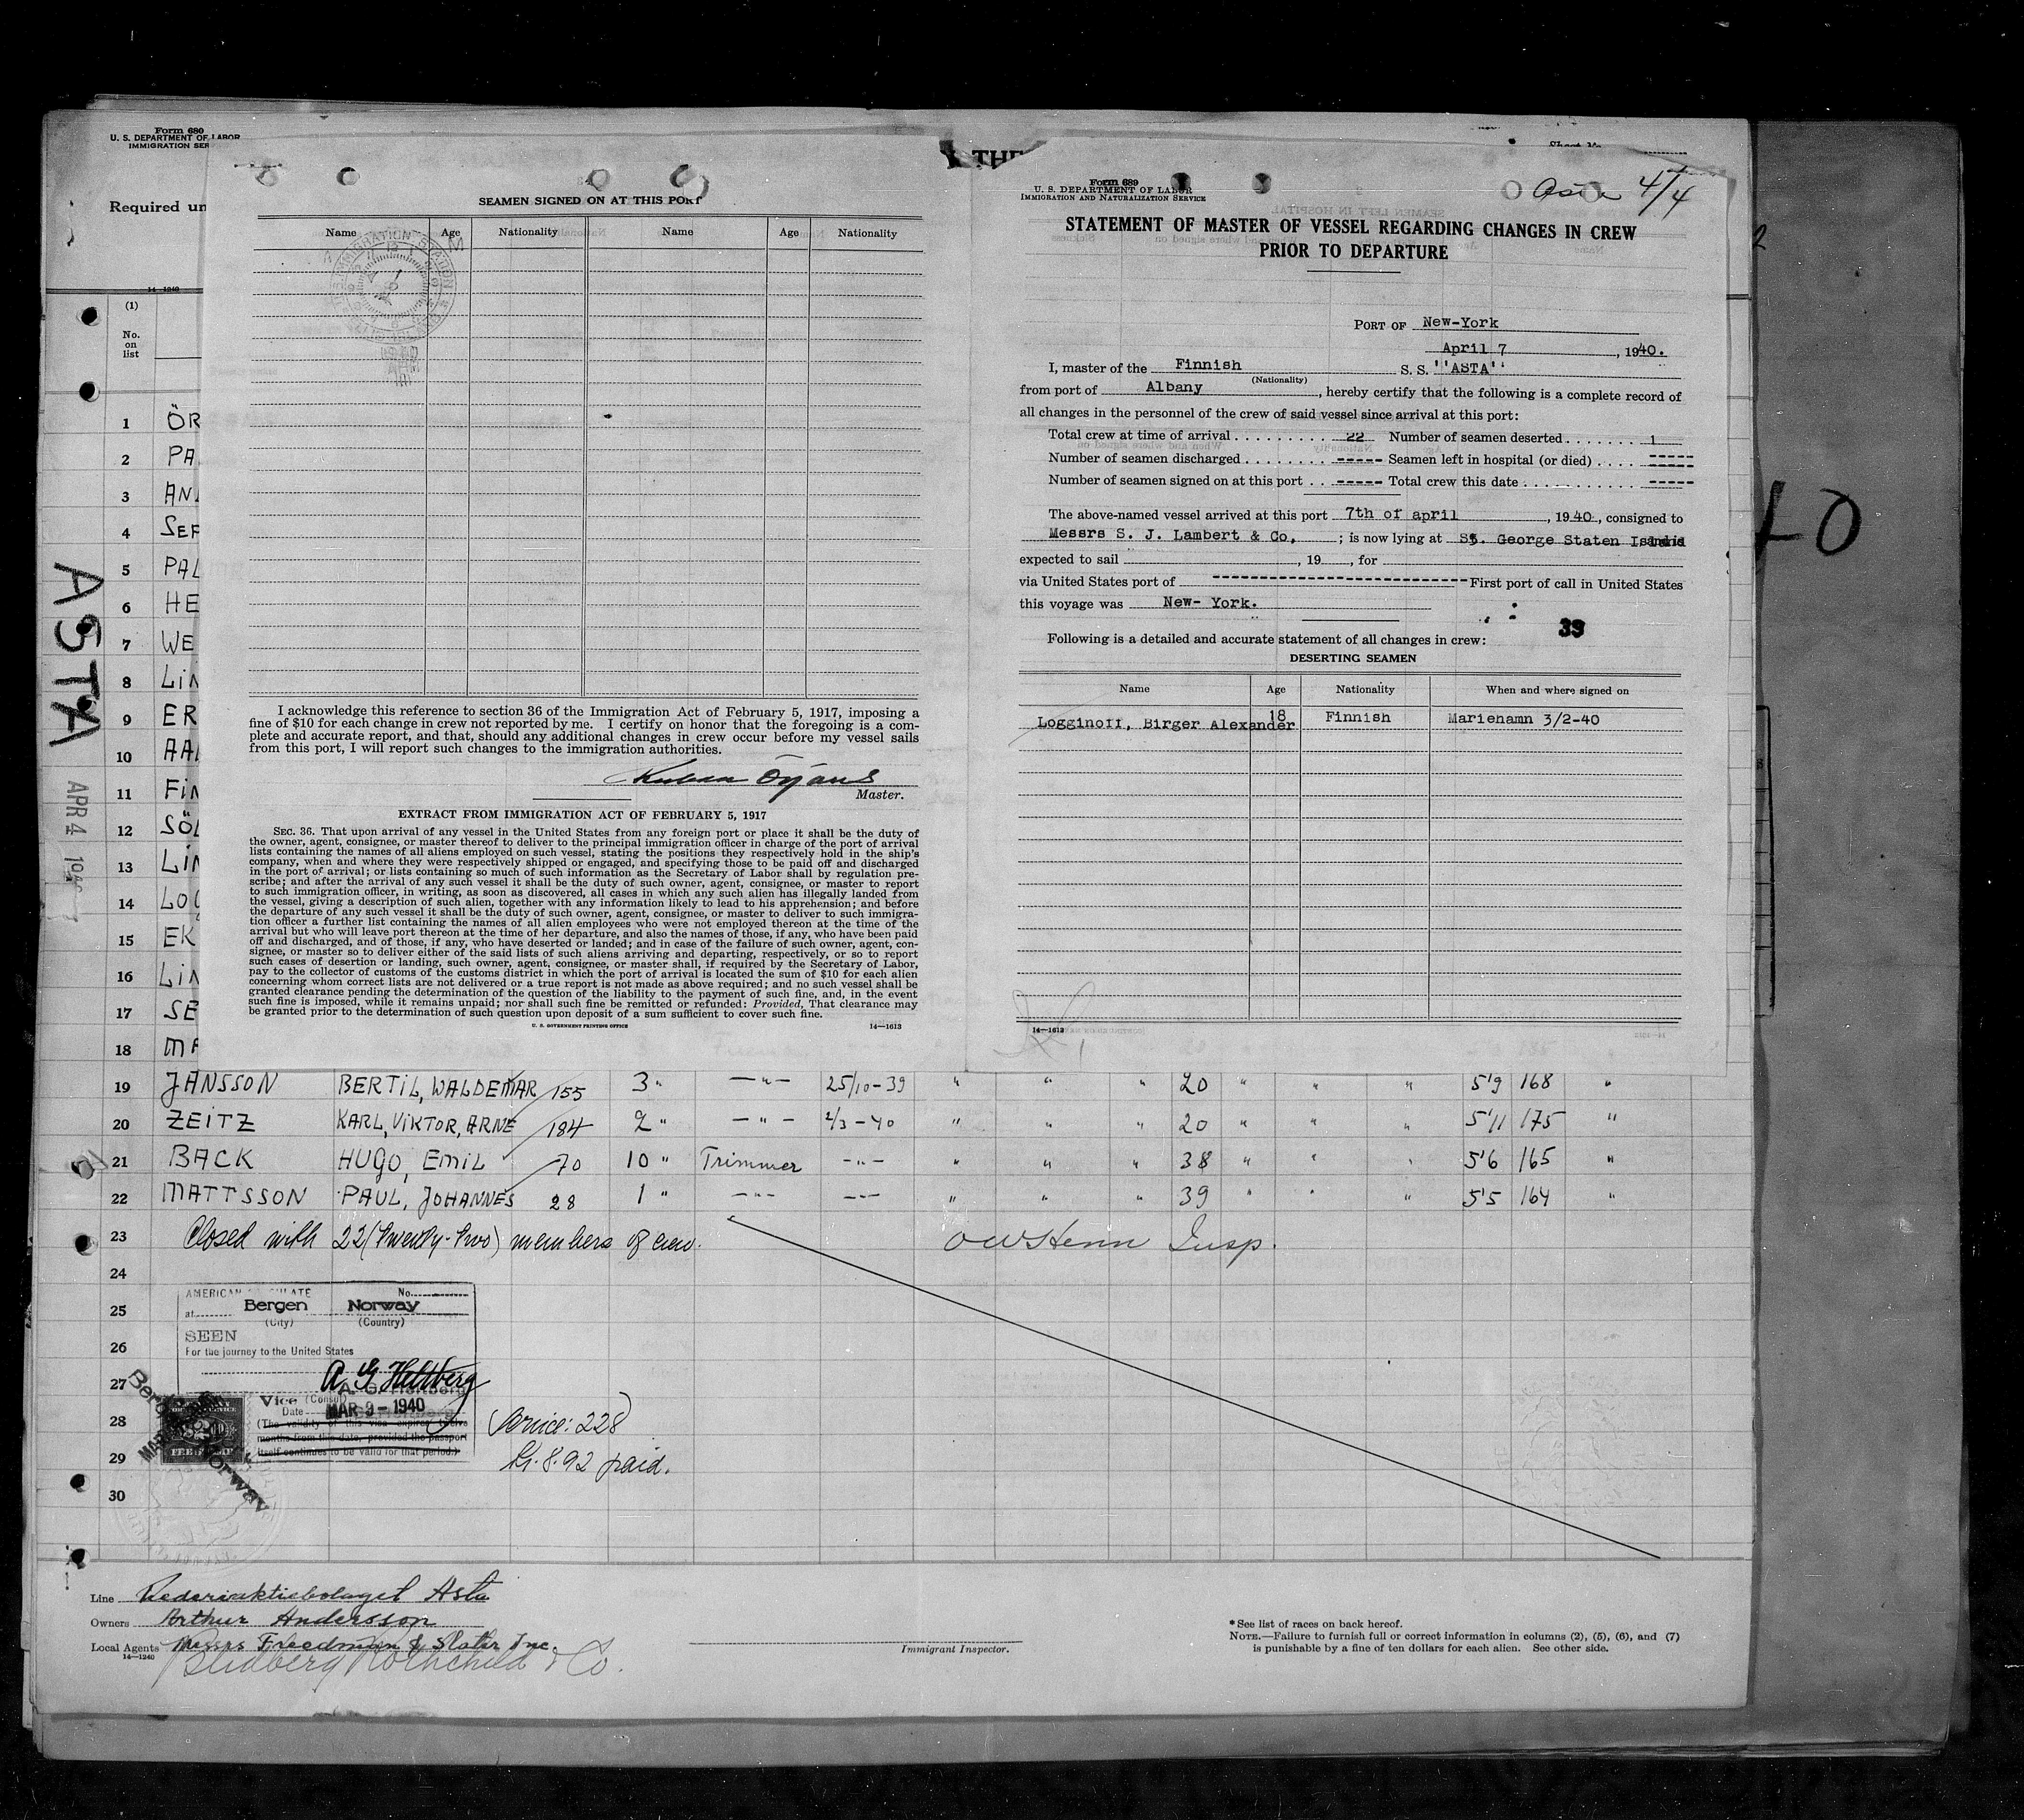 Form 680
U. S. DEPARTMENT OF LABOR
IMMIGRATION SER
Required un
14—1240
(1)
No.
on
list
THE
Sheet No.
SEAMEN SIGNED ON AT THIS PORT
Name Age Nationality Name Age Nationality
I acknowledge this reference to section 36 of the Immigration Act of February 5, 1917, imposing a
fine of $10 for each change in crew not reported by me. I certify on honor that the foregoing is a com-
plete and accurate report, and that, should any additional changes in crew occur before my vessel sails
from this port, I will report such changes to the immigration authorities.
Master.
EXTRACT FROM IMMIGRATION ACT OF FEBRUARY 5, 1917
SEC. 36. That upon arrival of any vessel in the United States from any foreign port or place it shall be the duty of
the owner, agent, consignee, or master thereof to deliver to the principal immigration officer in charge of the port of arrival
lists containing the names of all aliens employed on such vessel, stating the positions they respectively hold in the ship's
company, when and where they were respectively shipped or engaged, and specifying those to be paid off and discharged
in the port of arrival; or lists containing so much of such information as the Secretary of Labor shall by regulation pre-
scribe; and after the arrival of any such vessel it shall be the duty of such owner, agent, consignee, or master to report
to such immigration officer, in writing, as soon as discovered, all cases in which any such alien has illegally landed from
the vessel, giving a description of such alien, together with any information likely to lead to his apprehension; and before
the departure of any such vessel it shall be the duty of such owner, agent, consignee, or master to deliver to such immigra-
tion officer a further list containing the names of all alien employees who were not employed thereon at the time of the
arrival but who will leave port thereon at the time of her departure, and also the names of those, if any, who have been paid
off and discharged, and of those, if any, who have deserted or landed; and in case of the failure of such owner, agent, con-
signee, or master so to deliver either of the said lists of such aliens arriving and departing, respectively, or so to report
such cases of desertion or landing, such owner, agent, consignee, or master shall, if required by the Secretary of Labor,
pay to the collector of customs of the customs district in which the port of arrival is located the sum of $10 for each alien
concerning whom correct lists are not delivered or a true report is not made as above required; and no such vessel shall be
granted clearance pending the determination of the question of the liability to the payment of such fine, and, in the event
such fine is imposed, while it remains unpaid; nor shall such fine be remitted or refunded: Provided, That clearance may
be granted prior to the determination of such question upon deposit of a sum sufficient to cover such fine.
U. S. GOVERNMENT PRINTING OFFICE 14—1613
Form 689
U. S. DEPARTMENT OF LABOR
IMMIGRATION AND NATURALIZATION SERVICE
Asta 4/4
STATEMENT OF MASTER OF VESSEL REGARDING CHANGES IN CREW
PRIOR TO DEPARTURE
PORT OF New-York
April 7, 1940.
I, master of the Finnish S. S. ''ASTA''
(Nationality)
from port of Albany, hereby certify that the following is a complete record of
all changes in the personnel of the crew of said vessel since arrival at this port:
Total crew at time of arrival 22 Number of seamen deserted 1
Number of seamen discharged ----- Seamen left in hospital (or died) -----
Number of seamen signed on at this port ----- Total crew this date -----
The above-named vessel arrived at this port 7th of april, 1940, consigned to
Messrs S. J. Lambert & Co, ; is now lying at St. George Staten Island
expected to sail , 19 , for
via United States port of First port of call in United States
this voyage was New- York.
39
Following is a detailed and accurate statement of all changes in crew:
DESERTING SEAMEN
Name Age Nationality When and where signed on
Logginoff, Birger Alexander 18 Finnish Mariehamn 3/2-40
14—1613
ASTA
APR 4 1940
1 ÖR
2 PA
3 AN
4 SEF
5 PAL
6 HE
7 WE
8 LIN
9 ER
10 AAL
11 FIN
12 SÖL
13 LIN
14 LOG
15 EK
16 LIN
17 SE
18 MA
19 JANSSON BERTIL, WALDEMAR 155 3 " —"— 25/10-39 " " " 20 " " " 5'9 168 "
20 ZEITZ KARL, VIKTOR, ARNE 184 2 " —"— 2/3-40 " " " 20 " " " 5'11 175 "
21 BACK HUGO, EMIL 70 10 " Trimmer —"— " " " 38 " " " 5'6 165 "
22 MATTSSON PAUL, JOHANNES 28 1 " —"— —"— " " " 39 " " " 5'5 164 "
23 Closed with 22 (twenty-two) members of crew. Insp.
24
25
26
27
28
29
30
AMERICAN CONSULATE No.
at Bergen Norway
(City) (Country)
SEEN
For the journey to the United States
A. G. Heltberg
Vice (Consul)
Date MAR 9 - 1940
(The validity of this visa expires twelve
months from this date, provided the passport
itself continues to be valid for that period.)
Bergen, Norway
Service: 228
Kr. 8.92 paid.
Line Rederiaktiebolaget Asta
Owners Arthur Andersson
Local Agents Messrs Freedman & Slater Inc.
14—1240
Rothchild & Co.
Immigrant Inspector.
* See list of races on back hereof.
NOTE.—Failure to furnish full or correct information in columns (2), (5), (6), and (7)
is punishable by a fine of ten dollars for each alien. See other side.
40